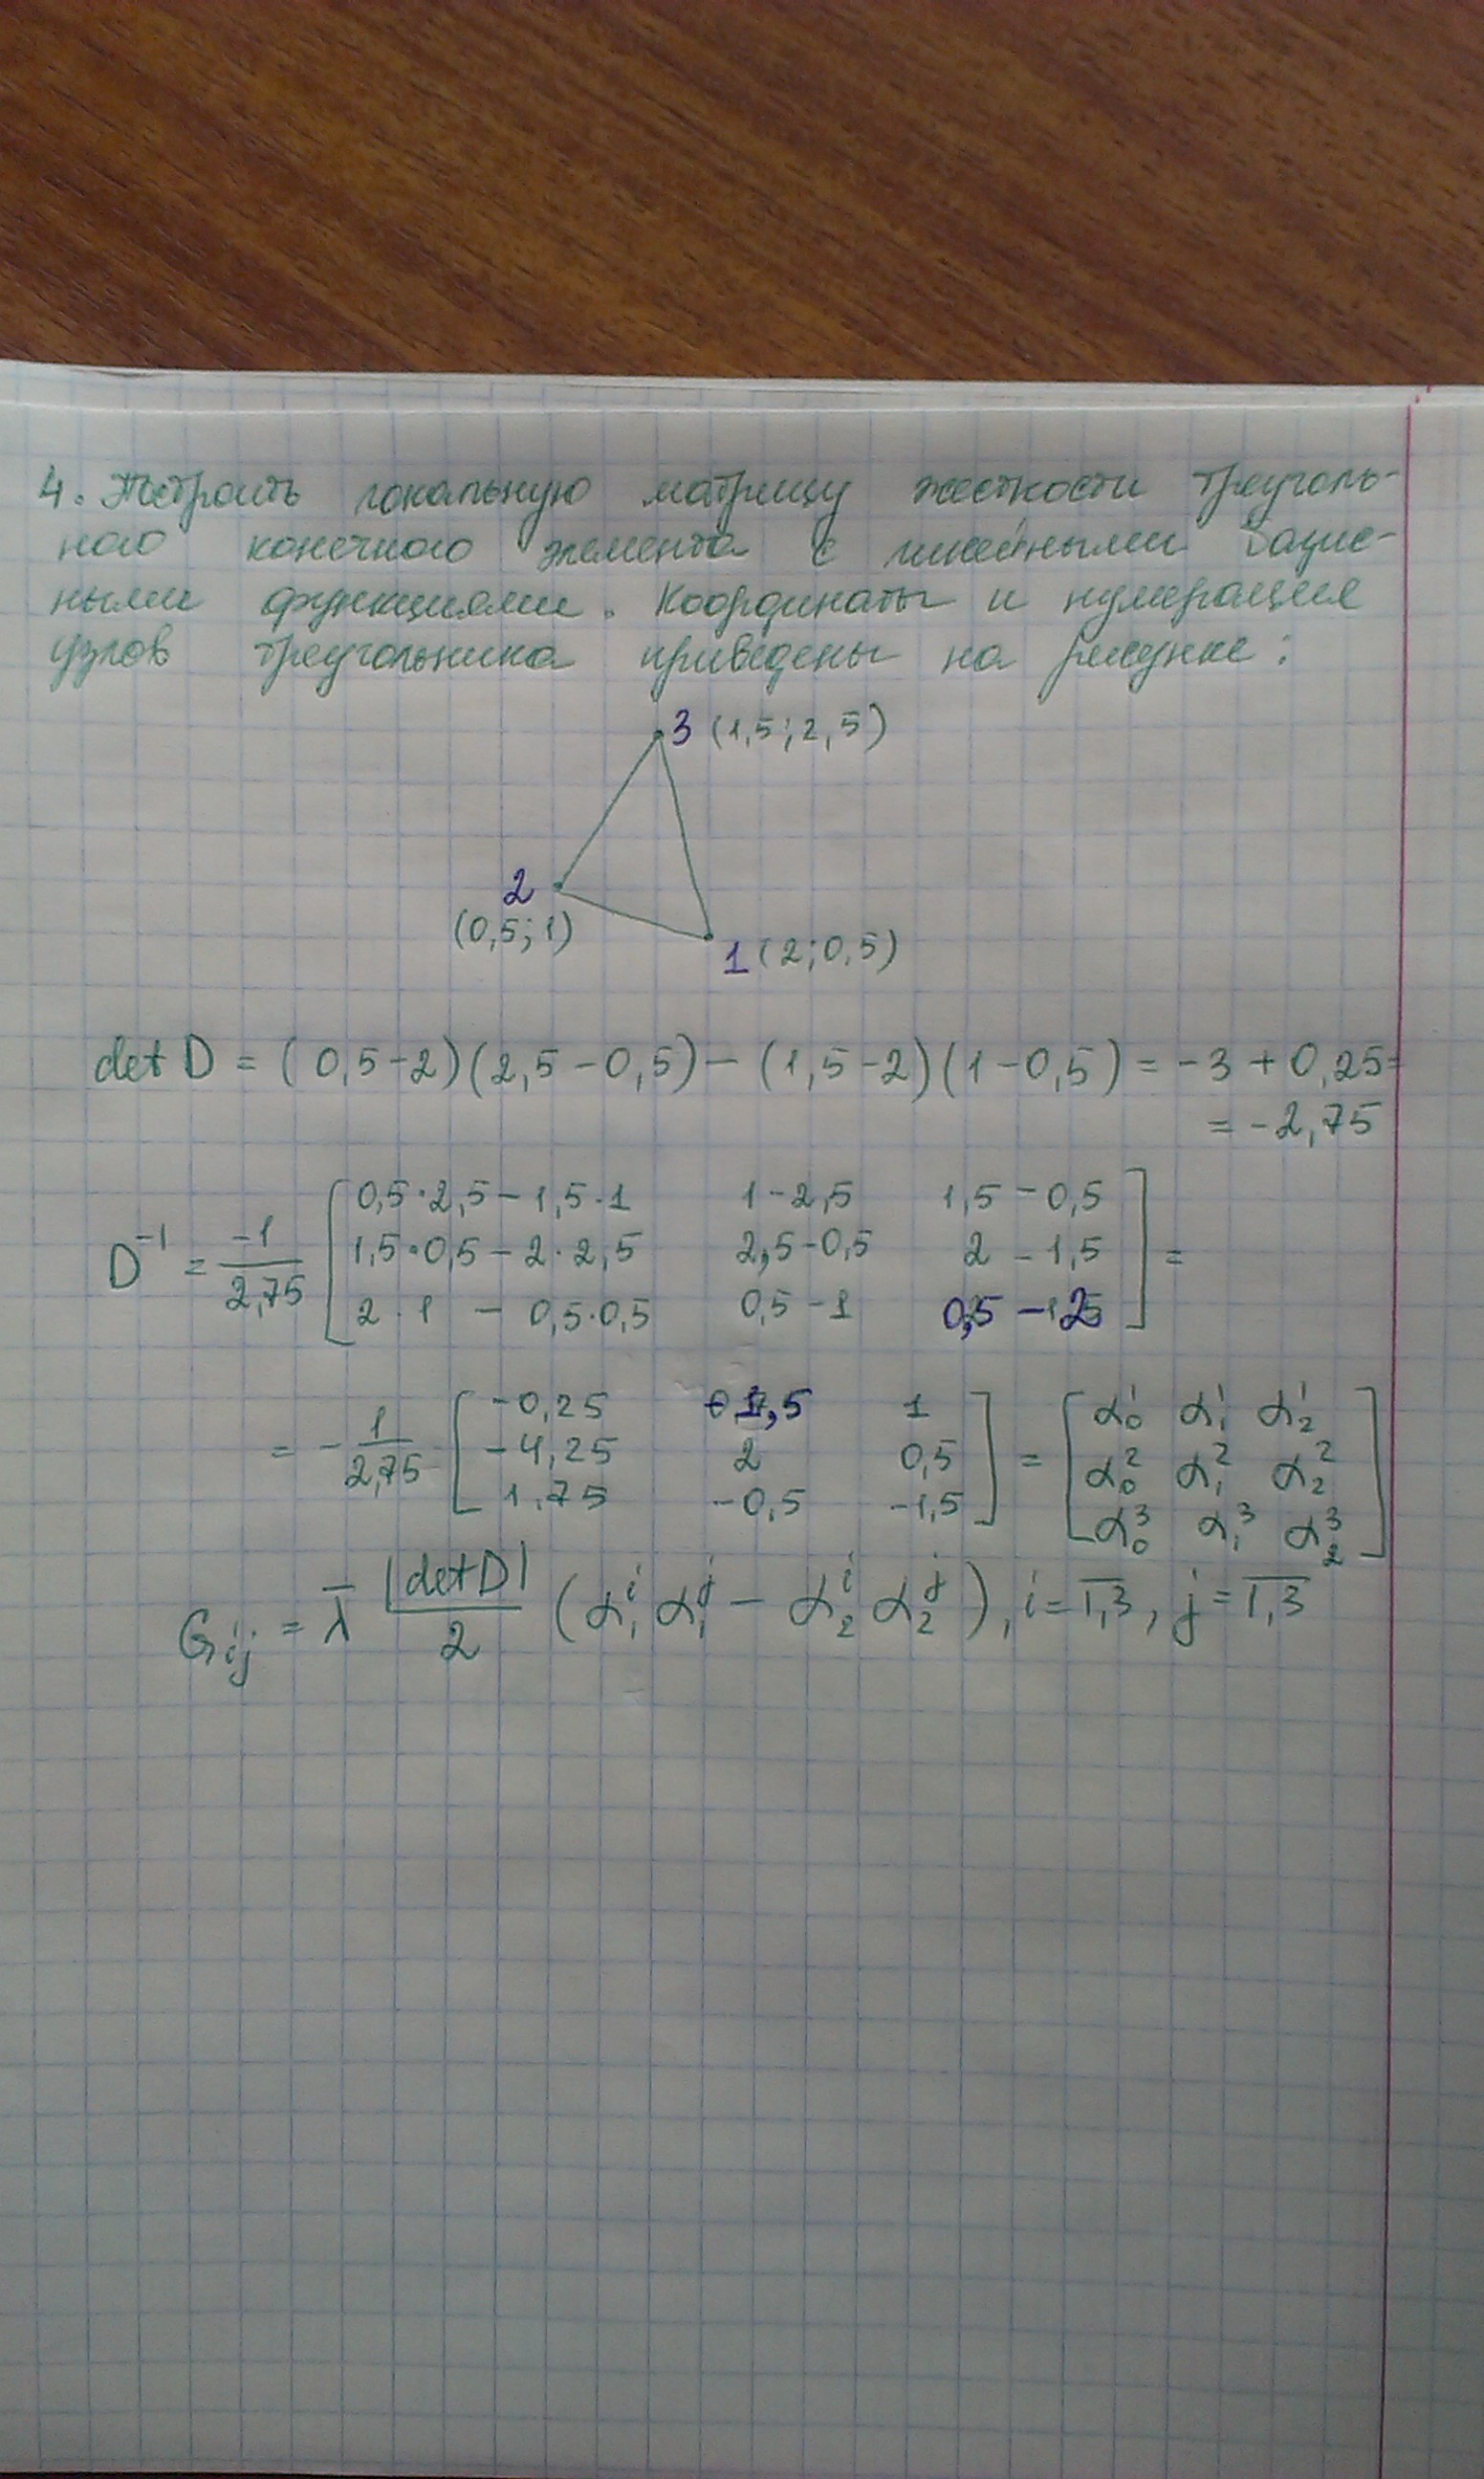 4. Построить локальную матрицу жесткости треуголь-
ного конечного элемента с линейными базис-
ными функциями. Координаты и нумерация
узлов треугольника приведены на рисунке:
3 (1,5; 2,5)
2
(0,5; 1)
1 (2; 0,5)
det D = (0,5-2)(2,5-0,5) - (1,5-2)(1-0,5) = -3 + 0,25 =
= -2,75
D⁻¹ = -1/2,75 [ 0,5·2,5 - 1,5·1 1-2,5 1,5-0,5
1,5·0,5 - 2·2,5 2,5-0,5 2-1,5
2·1 - 0,5·0,5 0,5-1 0,5-2 ] =
= -1/2,75 [ -0,25 -1,5 1
-4,25 2 0,5
1,75 -0,5 -1,5 ] = [ α₀¹ α₁¹ α₂¹
α₀² α₁² α₂²
α₀³ α₁³ α₂³ ]
Gᵢⱼ = λ̄ |det D|/2 (α₁ⁱ α₁ʲ - α₂ⁱ α₂ʲ), i = 1,3, j = 1,3